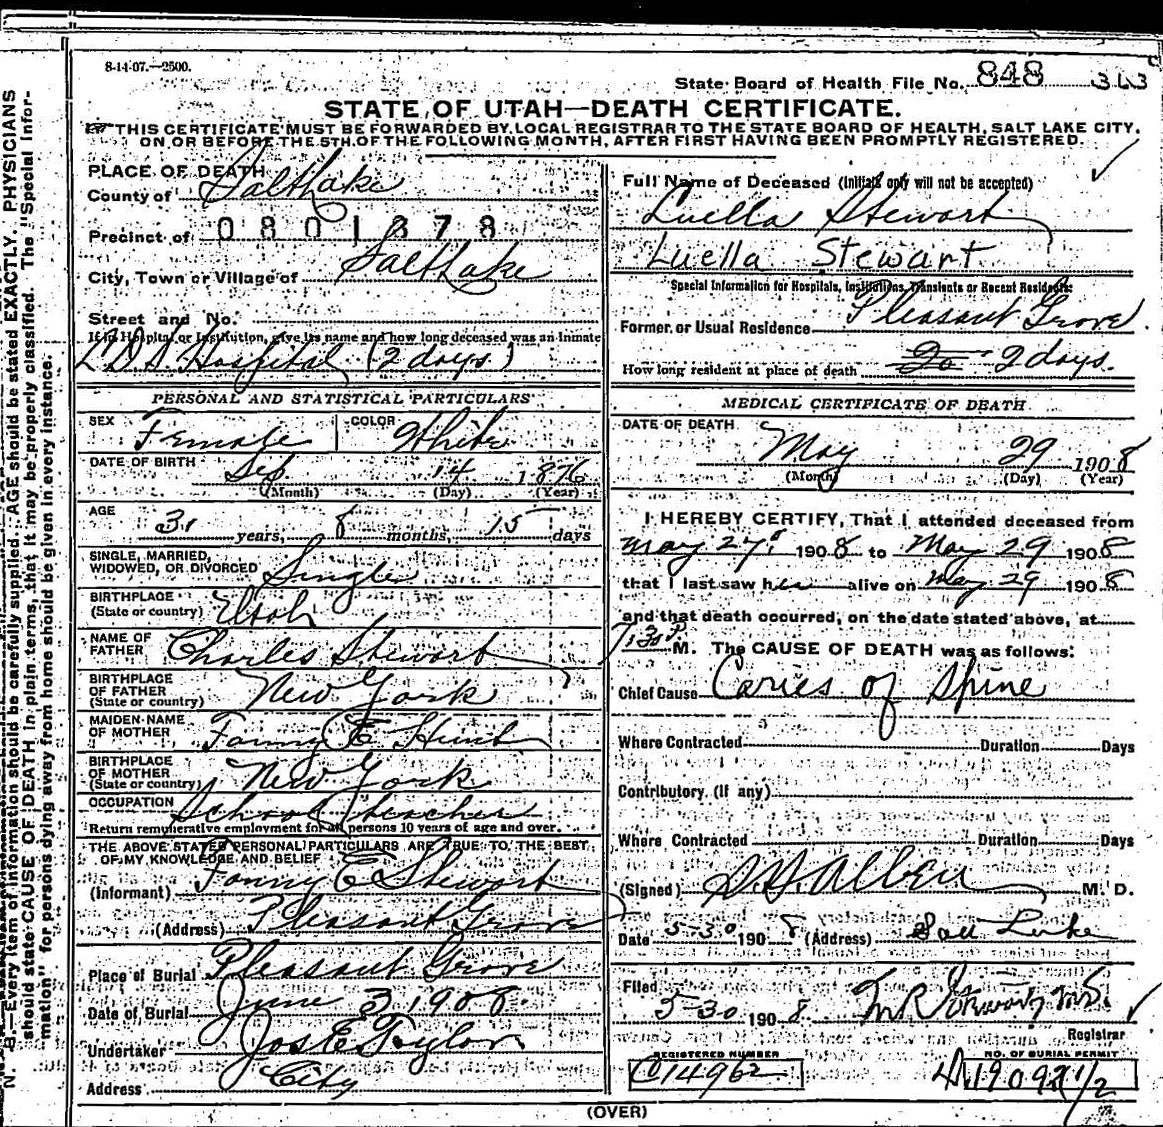 8-14-07.—2500.
State Board of Health File No. 848
STATE OF UTAH—DEATH CERTIFICATE.
THIS CERTIFICATE MUST BE FORWARDED BY LOCAL REGISTRAR TO THE STATE BOARD OF HEALTH, SALT LAKE CITY,
ON OR BEFORE THE 5TH OF THE FOLLOWING MONTH, AFTER FIRST HAVING BEEN PROMPTLY REGISTERED.
PLACE OF DEATH
County of Salt Lake
Precinct of 0801378
City, Town or Village of Salt Lake
Street and No.
If in Hospital or Institution, give its name and how long deceased was an inmate
L.D.S. Hospital (2 days.)
PERSONAL AND STATISTICAL PARTICULARS
SEX Female COLOR White
DATE OF BIRTH Sep. 14 1876
(Month) (Day) (Year)
AGE 31 years, 8 months, 15 days
SINGLE, MARRIED,
WIDOWED, OR DIVORCED Single
BIRTHPLACE
(State or country) Utah
NAME OF
FATHER Charles Stewart
BIRTHPLACE
OF FATHER
(State or country) New York
MAIDEN NAME
OF MOTHER Fanny E Hunt
BIRTHPLACE
OF MOTHER
(State or country) New York
OCCUPATION School Teacher
Return remunerative employment for all persons 10 years of age and over.
THE ABOVE STATED PERSONAL PARTICULARS ARE TRUE TO THE BEST
OF MY KNOWLEDGE AND BELIEF
(Informant) Fanny E Stewart
(Address) Pleasant Grove
Place of Burial Pleasant Grove
Date of Burial June 3 1908.
Undertaker Jos E Taylor
Address City
Full Name of Deceased (Initials only will not be accepted)
Luella Stewart
Luella Stewart
Special Information for Hospitals, Institutions, Transients or Recent Residents:
Former or Usual Residence Pleasant Grove
How long resident at place of death 2 days.
MEDICAL CERTIFICATE OF DEATH
DATE OF DEARTH May 29 1908
(Month) (Day) (Year)
I HEREBY CERTIFY, That I attended deceased from
May 27, 1908 to May 29 1908
that I last saw her alive on May 29 1908
and that death occurred, on the date stated above, at
7:30 P. M. The CAUSE OF DEATH was as follows:
Chief Cause Caries of Spine
Where Contracted Duration Days
Contributory (If any)
Where Contracted Duration Days
(Signed) Allen M. D.
Date 5-30 1908 (Address) Salt Lake
Filed
5-30 1908
Registrar
REGISTERED NUMBER NO. OF BURIAL PERMIT
14962
(OVER)
N. B.—Every item of information should be carefully supplied. AGE should be stated EXACTLY. PHYSICIANS
should state CAUSE OF DEATH in plain terms, that it may be properly classified. The "Special Infor-
mation" for persons dying away from home should be given in every instance.